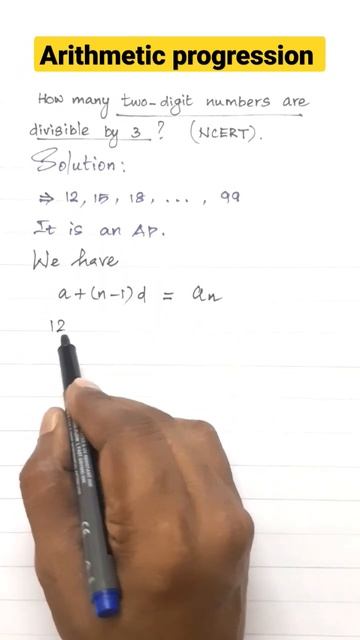 Arithmetic progression
How many two-digit numbers are
divisible by 3? (NCERT).
Solution:
⇒ 12, 15, 18, ..., 99
It is an AP.
We have
a+(n-1)d = an
12